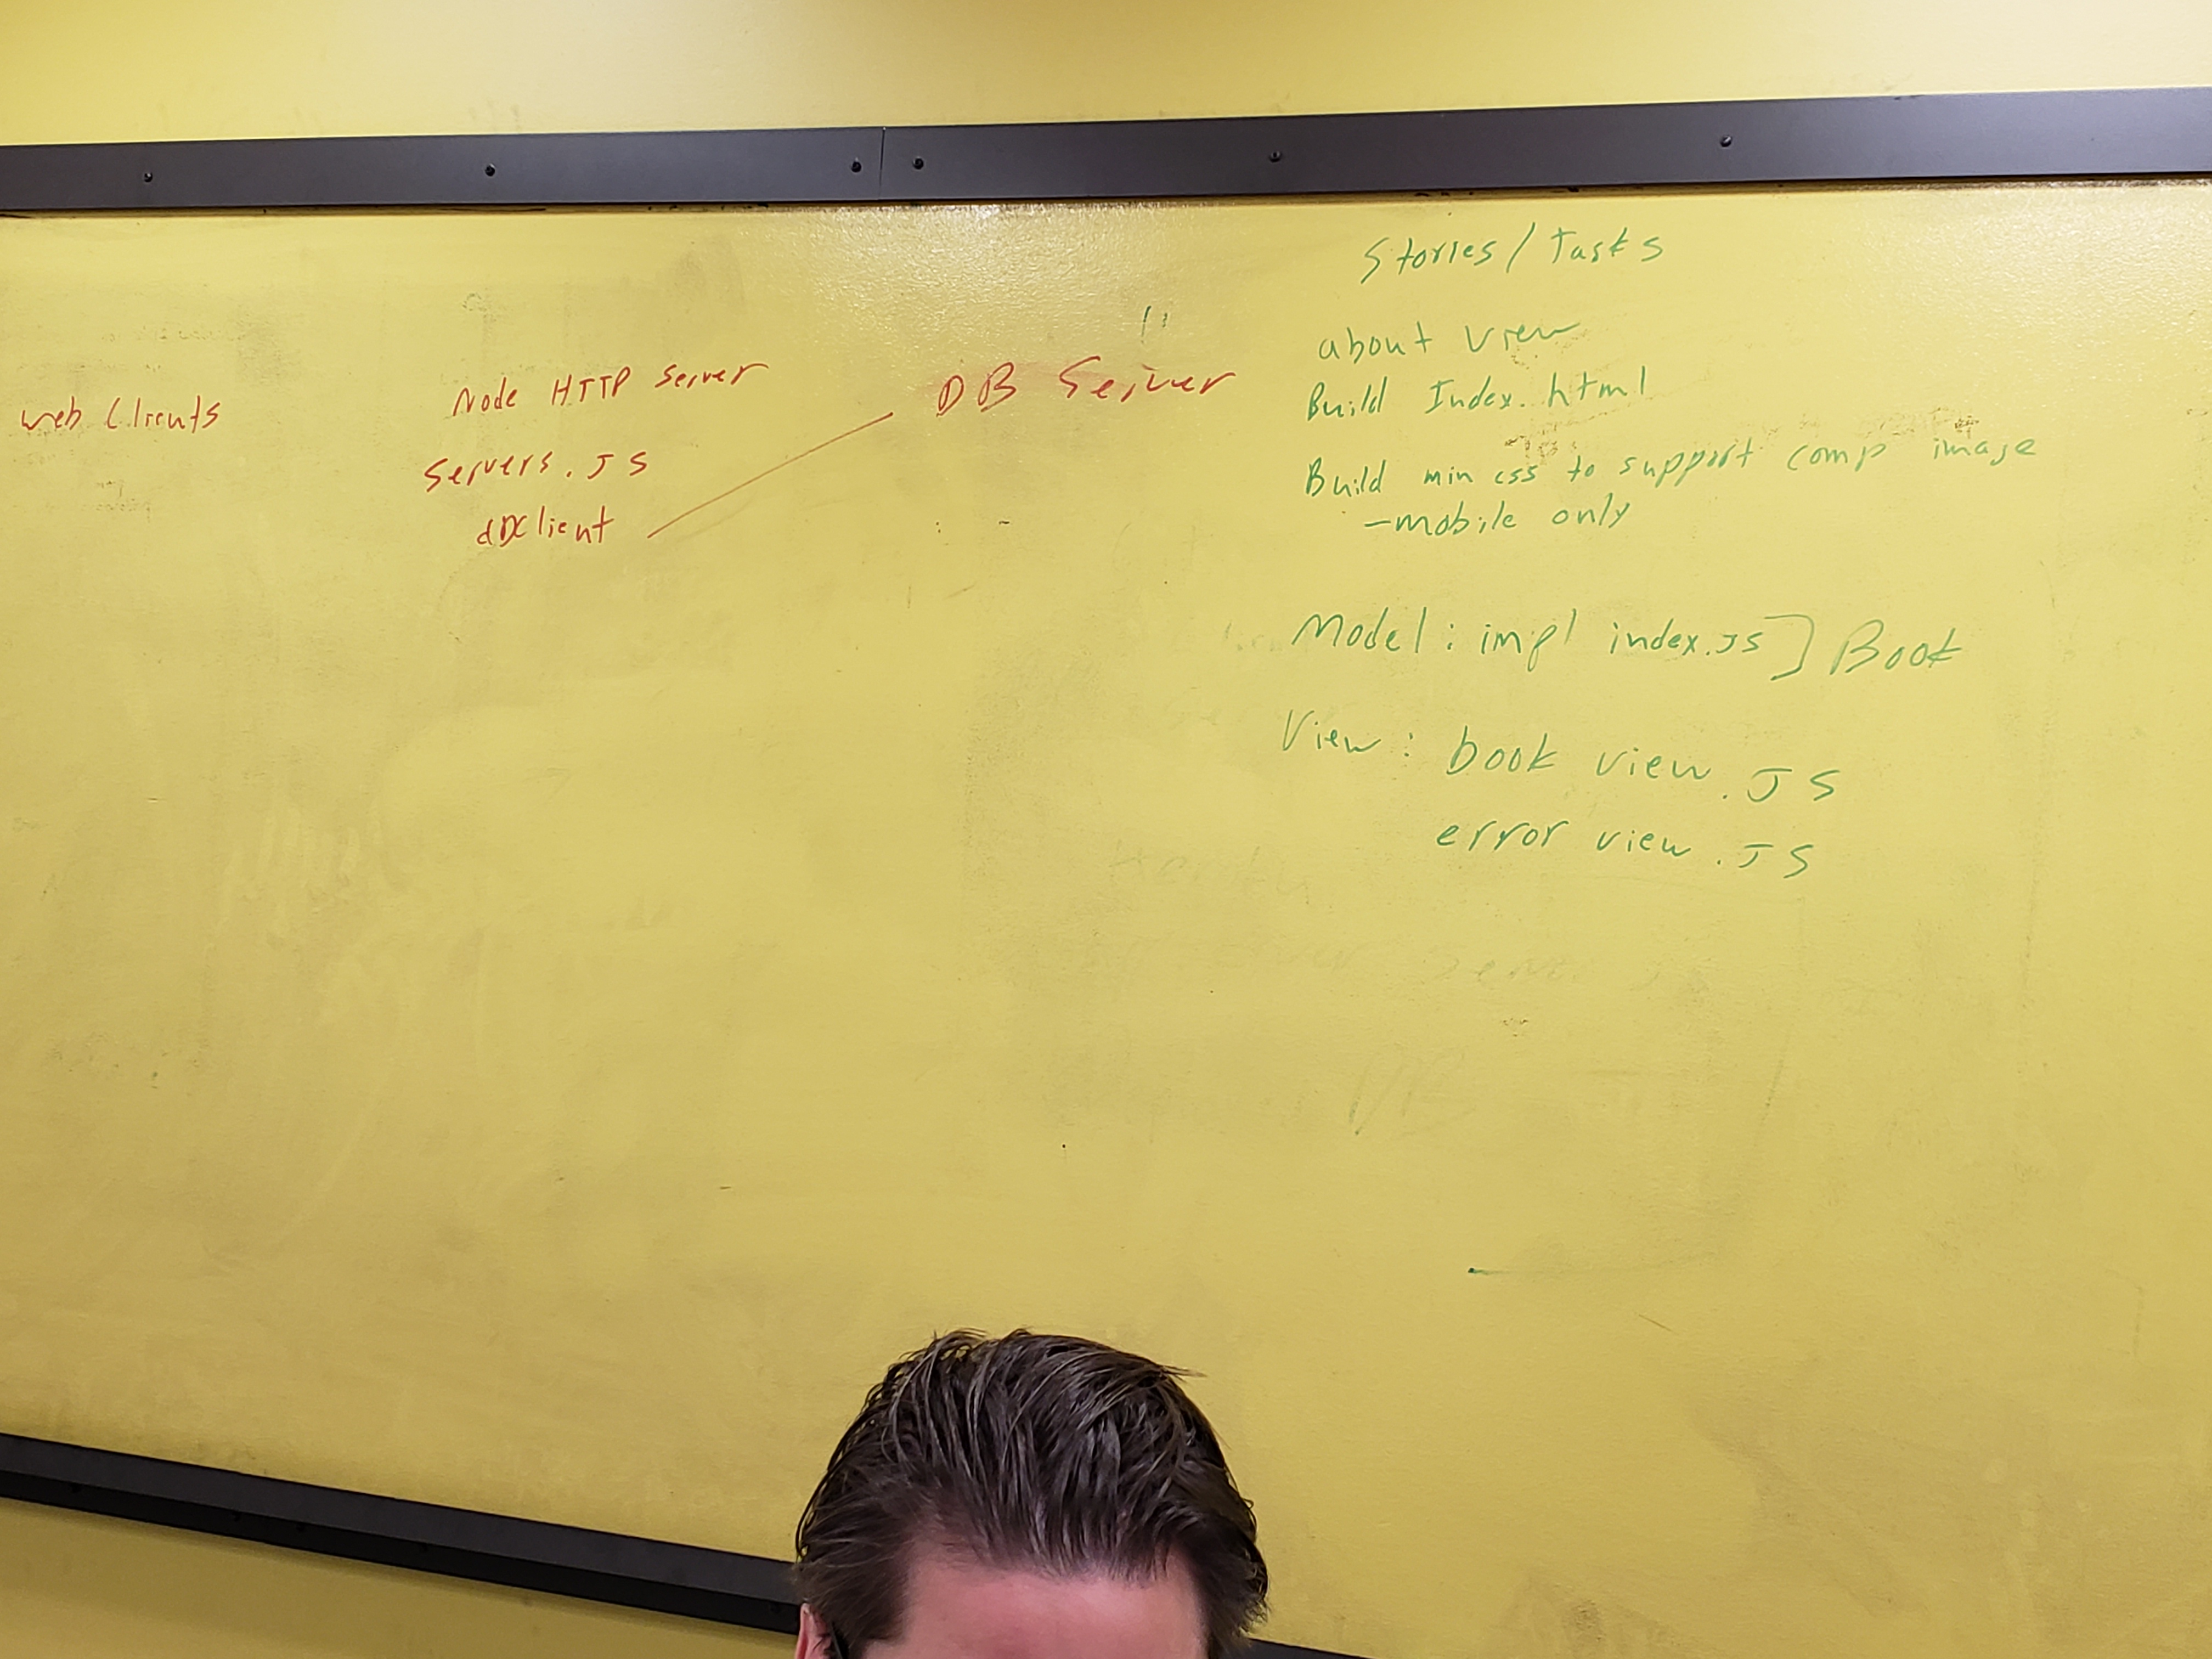 Web Clients
Node HTTP Server
Servers.JS
dbClient
DB Server
Stories/Tasks
about view
Build Index.html
Build min css to support comp image
-mobile only
Model: impl index.JS ] Book
View: book view.JS
error view.JS